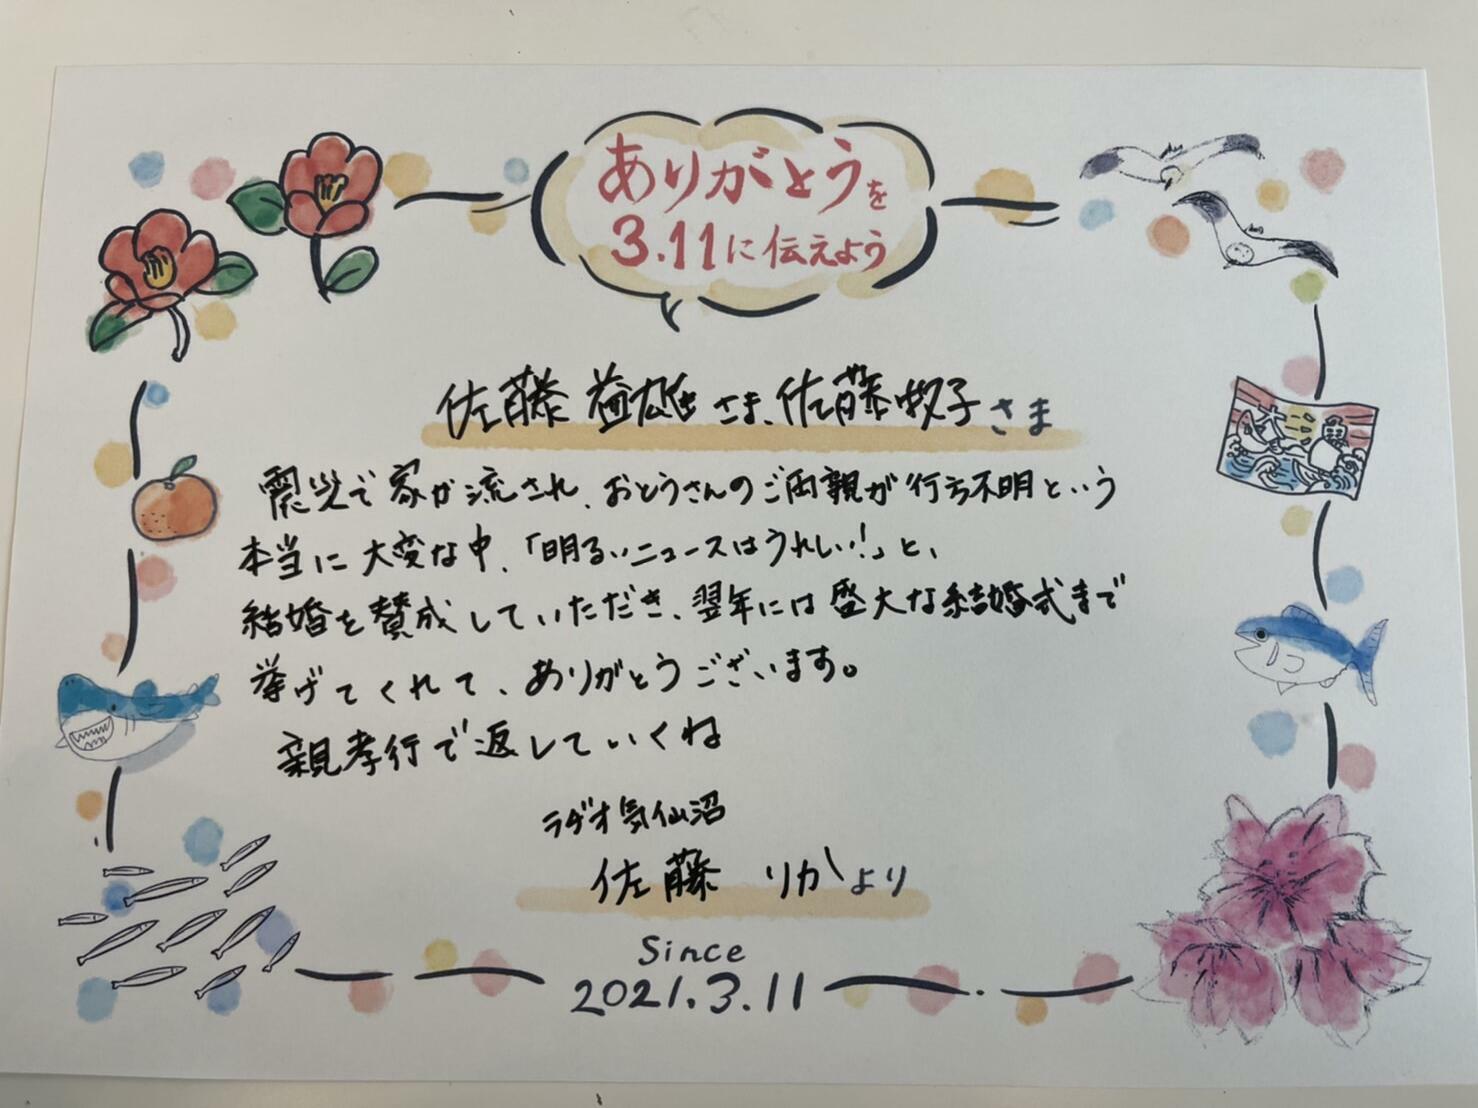 ありがとうを
3.11に伝えよう
佐藤 益雄さま、佐藤牧子さま
震災で家が流され、おとうさんのご両親が行方不明という
本当に大変な中、「明るいニュースはうれしい!」と、
結婚を賛成していただき、翌年には盛大な結婚式まで
挙げてくれて、ありがとうございます。
親孝行で返していくね
ラヂオ気仙沼
佐藤 りかより
Since
2021.3.11